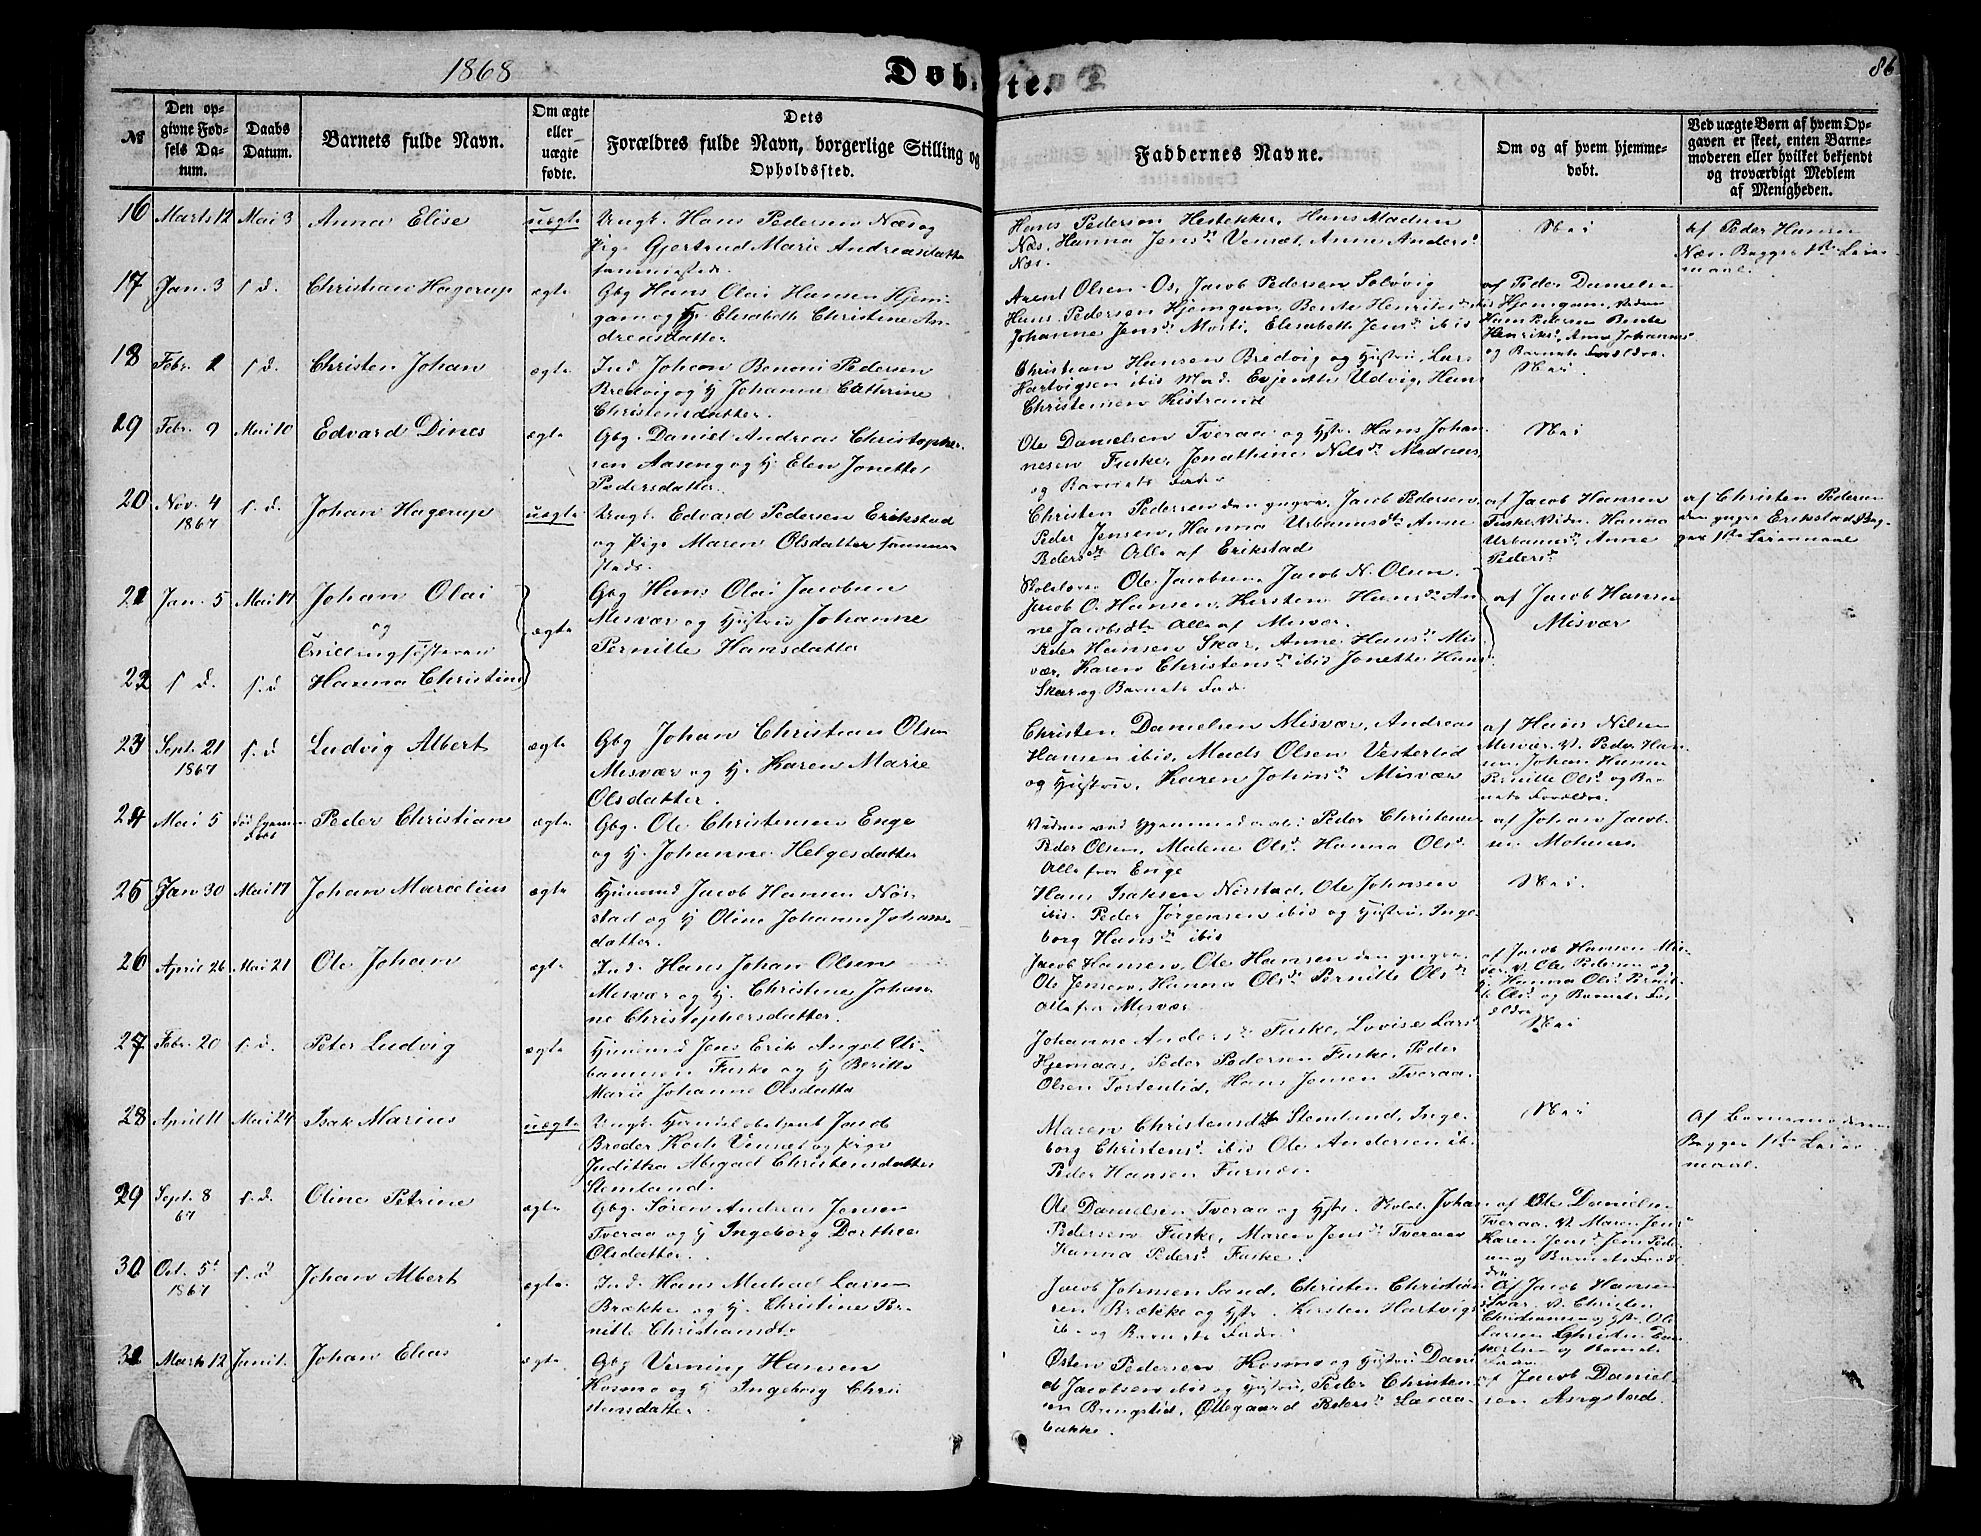 1868
Døbte.
86
№
Den opgivne Fødsels Datum.
Daabs Datum.
Barnets fulde Navn.
Om ægte eller uægte fødte.
Dets Forældres fulde Navn, borgerlige Stilling og Opholdssted.
Faddernes Navne.
Om og af hvem hjemmedøbt.
Ved uægte Børn af hvem Opgaven er skeet, enten Barnemoderen eller hvilket bekjendt og troværdigt Medlem af Menigheden.
16 Marts 12 Mai 3 Anna Elise uægte Ungk. Hans Pedersen Næs og
Pige Gjertrud Marie Andreasdatter
sammesteds.
Hans Pedersen Hestekker, Hans Madsen
Næs, Hanna Jensd. Venset, Anne Andersd.
Næs.
Nei
af Peder Hansen
Næs. Begges 1ste Leier-
maal.
17 Jan. 3 s. d. Christian Hagerup ægte Gbg Hans Olai Hansen Hjem-
gam og H. Elisabeth Christine An-
dreasdatter
Arent Olsen Os, Jacob Pedersen Solvig
Hans Pedersen Hjemgam, Bente Henriksd.
Johanne Jensd. Elisabeth Jensd. ibid
af Peder Danielsen
Hjemgam, Vidner
Hans Pedersen Bente
Henriksd., Anne Johannesd.
og Barnets Forældre.
18 Febr. 2 s. d. Christen Johan ægte Ind. Johan Benoni Pedersen
Bredvig og H. Johanne Cathrine
Christensdatter.
Christian Hansen Bredvig og Hustru, Lars
Hartvigsen ibid Mad. Evjenth Udvig, Hans
Christensen Kistrand
Nei.
29 Febr. 9 Mai 10 Edvard Dines ægte Gbg. Daniel Andreas Christopher-
sen Aaseng og H. Elen Jonette
Pedersdatter.
Ole Danielsen Tveraa og Hstr. Hans Johan-
nesen Fuske, Jonathine Nilsd.
og Barnets Fader
Nei
20 Nov. 4 s. d. Johan Hagerup uægte Ungk. Edvard Pedersen Erikstad
1867
og Pige Maren Olsdatter sammes-
steds.
Christen Pedersen den yngre, Jacob Pedersen,
Peder Jensen, Hanna Urbanusd. Anne
Pedersd. Alle af Erikstad
af Jacob Hansen
Fuske. Vidn. Hanna
Urbanusd. Anne
Pedersd.
af Christen Pedersen
den yngre Erikstad Beg-
ges 1ste Leiermaal
21 Jan. 5 Mai 17 Johan Olai
og
Tvillingsøsteren
ægte
Gbg Hans Olai Jacobsen
Misvær og Hustru Johanne
Pernille Hansdatter
Skolelærer Ole Jacobsen, Jacob N. Olsen
Jacob O. Hansen, Kirsten Hansd. An-
ne Jacobsdtr Alle af Misvær.
af Jacob Hansen
Misvær
22 s. d. s. d Hanna Christine
Peder Hansen Skar, Anne Hansd. Mis-
vær, Karen Christensd. ibid Jonette Hansd.
Skar og Barnets Fader.
23 Sept. 21 s. d Ludvig Albert ægte Gbg Johan Christian Olsen
1867
Misvær og H. Karen Marie
Olsdatter.
Christen Danielsen Misvær, Andreas
Hansen ibid, Mads Olsen Vesterlid
og Hustru, Karen Johnsd. Misvær
af Hans Nilsen
Misvær. V. Peder Han-
sen, Johan Hansen
Pernille Olsd. og Bar-
nets Forældre.
24 Mai 5 Peder Christian ægte. Gbg. Ole Christensen Enge
og H. Johanne Helgesdatter
Vidner ved Hjemmedaab: Peder Christensen
Peder Olsen, Malene Olsd. Hanna Olsd.
Alle fra Enge
af Johan Jacob-
sen
25 Jan 30 Mai 17 Johan Marcelius ægte Huusmd Jacob Hansen Nor-
stad og H Oline Johanne Johans-
datter.
Hans Isaksen Norstad, Ole Johnsen
ibid. Peder Jørgensen ibid og Hustru, Inge-
borg Hansd. ibid
Nei.
26 April 26 Mai 21 Ole Johan ægte Ind. Hans Johan Olsen
Misvær og H. Christine Johan-
ne Christophersdatter.
Jacob Hansen, Ole Hansen den yngre
Ole Jensen, Hanna Olsd. Pernille Olsd.
Alle fra Misvær
af Jacob Hansen Mis-
vær. V. Ole Pedersen og
H. Hanna Olsd. Pernil-
le Olsd. og Barnets For-
ældre
27 Febr. 20 s. d. Peter Ludvig ægte Huusmd Jens Erik Angel Ur-
banusen Fuske og H Berith
Marie Johanne Olsdatter
Johanne Andersd. Fuske, Lovise Larsd.
Hjemaas, Peder Pedersen Fuske, Peder
Olsen Tortenlid, Hans Jensen Tveraa.
Nei
28 April 11 Mai 24 Isak Marius uægte Ungk. Jacob
Broder Koch Venset og Pige
Juditha Abigael Christensdatter
Stemland.
Maren Christensdtr Stemland, Inge-
borg Christensd. ibid Ole Andersen ib.
Peder Hansen Furnes.
Nei
Af Barnemoderen
Begges 1ste Leier-
maal.
29 Sept. 8 s. d. Oline Petrine ægte Gbg. Søren Andreas Jensen
67
Tveraa og H Ingeborg Dorthea
Olsdatter.
Ole Danielsen Tveraa og Hstr. Skolel. Johan
Pedersen Fuske, Maren Jensd. Tveraa
Hanna Pedersd. Fuske.
af Ole Danielsen
Tveraa. V. Maren Jensd.
Karen Jensd. Jens Peder-
sen og Barnets Foræl-
dre
30 Oct. 5 s. d Johan Albert ægte. Ind. Hans Michael Larsen
1867
Brække og H. Christine Per-
nille Christiansdtr
Jacob Johnsen Sand, Christen Christian-
sen Brække og Hstr. Kirsten Hartvigsd.
ib. og Barnets Fader.
Af Jacob Hansen
Skar. V. Christen
Christiansen og Hstr. Ole
Larsen Christen
og Barnets
Fader
31 Marts 12 Juni 1. Johan Elias ægte Gbg Verning Hansen
Kosmo og H Ingeborg Chri-
stensdatter.
Østen Pedersen Kosmo og Hustru Dani-
el Jacobsen ibid og Hustru, Peder Christen-
sen Bringslid, Ottegaard Pedersd.
bakke.
af Jacob Daniel-
sen Asrystad.